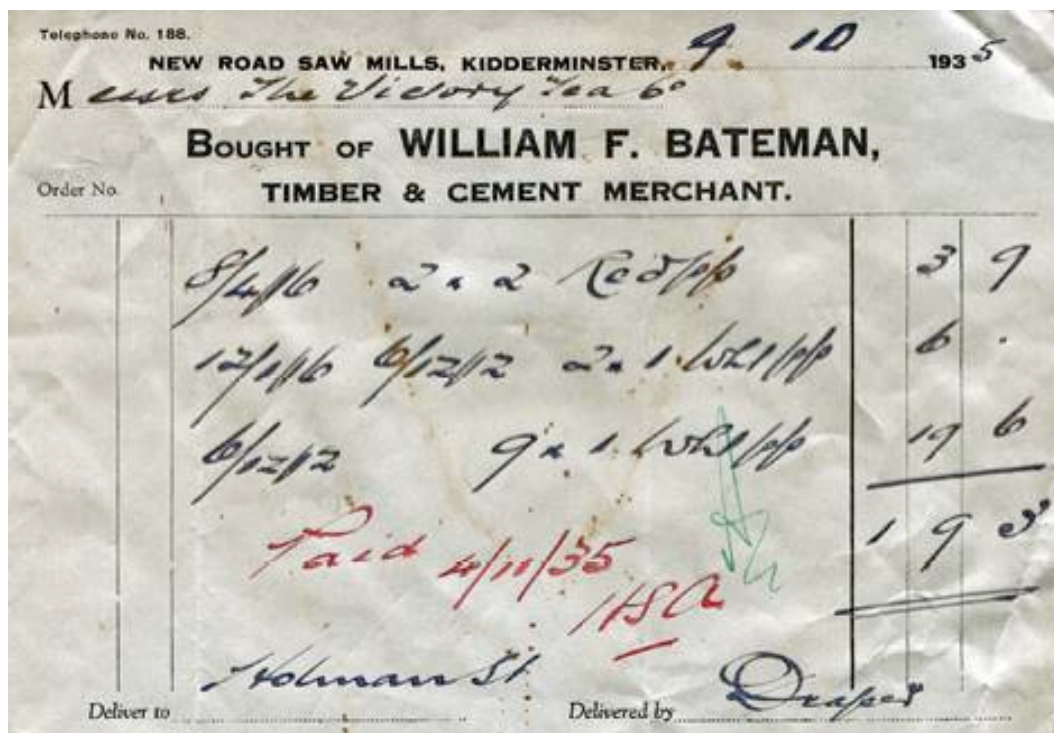 Telephone No. 188.
NEW ROAD SAW MILLS, KIDDERMINSTER, 9. 10 1935
Messrs The Victory Tea Co
BOUGHT OF WILLIAM F. BATEMAN,
Order No.
TIMBER & CEMENT MERCHANT.
8/4/16 2 x 2 Red p/p 3 9
12/1/16 6/12/12 2 x 1 Wht p/p 6 .
6/12/12 9 x 1 Wht p/p 19 6
1 9 3
Paid 4/11/35
HSA
Holman St
Draper
Deliver to
Delivered by